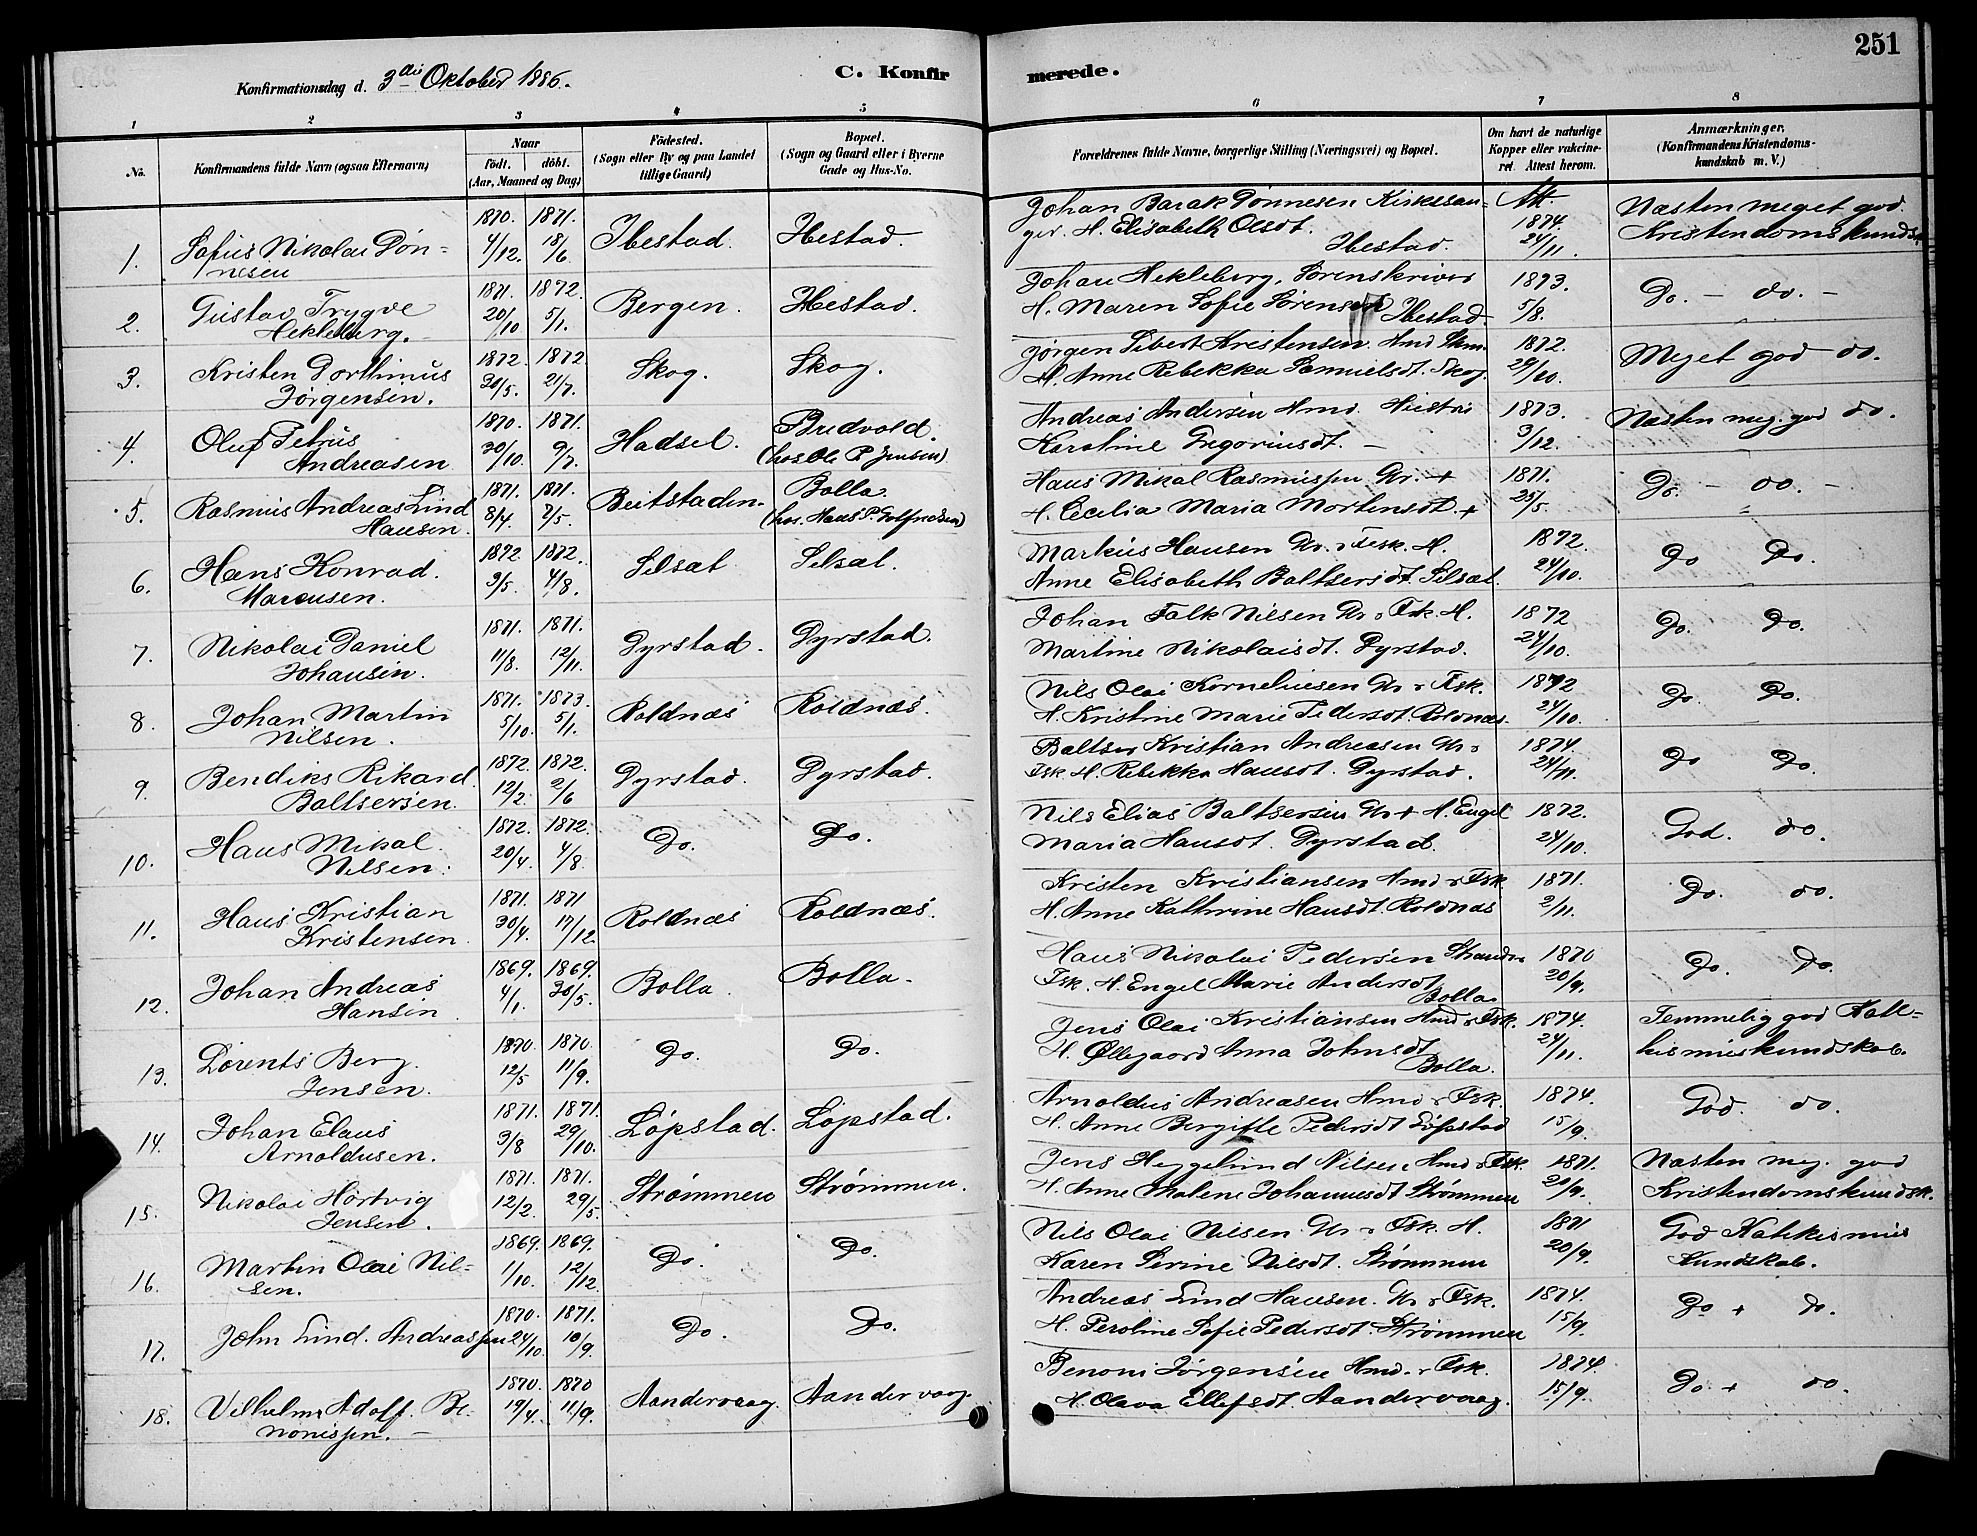 251
Konfirmationsdag d. 3die Oktober 1886.
C. Konfirmerede.
1 2 3 4 5 6 7 8
No.
Konfirmandens fulde Navn (ogsaa Efternavn)
Naar
födt. döbt.
(Aar, Maaned og Dag)
Födested.
(Sogn eller By og paa Landet
tillige Gaard)
Bopæl.
(Sogn og Gaard eller i Byerne
Gade og Hus-No.
Forældrenes fulde Navne, borgerlige Stilling (Næringsvei) og Bopæl.
Om havt de naturlige
Kopper eller vakcine-
ret. Attest herom.
Anmærkninger,
(Konfirmandens Kristendoms-
kundskab m. V.)
1. Sofus Nikolai Dön-
nesen
1870. 4/12. 1871. 18/6.
Ibestad. Ibestad.
Johan Barak Dønnesen Kirkesan-
ger. H. Elisabeth Olsdt.
Ibestad.
Att. 1874. 24/11.
Næsten meget god
Kristendomskundsk.
2. Gustav Trygve
Hekleberg.
1871. 20/10 1872. 5/1.
Bergen. Ibestad.
Johan Hekleberg, Sorenskriver
H. Maren Sofie Sörensen Ibestad.
1873. 5/8.
Do. - do. -
3. Kristen Dorthinus
Jörgensen.
1872 20/5. 1872 21/7.
Skog. Skog.
Jörgen Sibert Kristensen Hmd
H. Anne Rebekka Samuelsdt. Skog.
1872. 24/10.
Meget god do.
4. Oluf Petrus
Andreasen
1870. 20/10 1871. 9/7.
Hadsel. Bredvold.
(hos Ole P. Jensen)
Andreas Andersen Hmd.
Karoline Gregoriusdt. -
1873. 3/12.
Næsten meg. god do.
5. Rasmus Andreas Lind
Hansen.
1871. 8/4. 1871. 7/5.
Beitstaden. Bolla.
(hos. Hans P. Gotfredsen)
Hans Mikal Rasmussen Gr. +
H. Cecilia Maria Mortensdt. +
1871. 25/5.
Do. - do. -
6. Hans Konrad.
Marcusen.
1872 3/5. 1872. 4/8.
Selsæt. Selsæt.
Markus Hansen Gr. & Fsk. H.
Anne Elisabeth Baltsersdt. Selsæt.
1872. 24/10.
Do Do.
7. Nikolai Daniel
Johansen.
1871. 11/8. 1871. 12/11.
Dyrstad. Dyrstad.
Johan Falk Nilsen Gr. & Fsk. H.
Martine Nikolaisdt. Dyrstad.
1872 24/10.
Do. Do.
8. Johan Martin
Nilsen.
1871. 5/10. 1873. 5/1.
Roldnæs Roldnæs.
Nils Olai Korneliusen Gr. & Fsk.
H. Kristine Marie Pedersdt. Roldnæs
1872 24/10.
Do. Do.
9. Bendiks Rikard
Baltsersen.
1872. 12/2. 1872. 2/6
Dyrstad. Dyrstad.
Baltser Kristian Andreasen Gr. &
Fsk. H. Rebekka Hansdt. Dyrstad.
1874. 24/11.
Do Do.
10. Hans Mikal
Nilsen.
1872. 20/4. 1872. 4/8.
Do. Do.
Nils Elias Baltsersen Gr. + H. Engel
Maria Hansdt. Dyrstad.
1872. 24/10.
God. do.
11. Hans Kristian
Kristensen.
1871. 30/4. 1871 17/12.
Roldnæs Roldnæs.
Kristen Kristiansen Hmd & Fsk
H. Anne Kathrine Hansdt. Roldnæs
1871. 2/11.
Do. do.
12. Johan Andreas
Hansen.
1869. 4/1. 1869. 30/5.
Bolla. Bolla.
Hans Nikolai Pedersen
Fsk. H. Engel Marie Andersdt
Bolla.
1870 20/9.
Do. Do.
13. Lorents Berg
Jensen.
1870. 12/5 1870. 11/9.
Do. Do.
Jens Olai Kristiansen Hmd & Fsk.
H. Øllegaard Anna Johnsdt
Bolla.
1874. 24/11.
Temmelig god Kate-
kismuskundskab.
14. Johan Elaus
Arnoldusen.
1871. 3/8 1871. 29/10.
Löpstad. Löpstad.
Arnoldus Andreasen Hmd & Fsk.
H. Anne Bergitte Pedersdt Löpstad
1874. 15/9.
God. do.
15. Nikolai Hartvig
Jensen.
1871. 12/2. 1871. 29/5.
Strømmen Strømmen.
Jens Heggelund Nilsen Hmd & Fsk.
H. Anne Malene Johannesdt Strømmen
1871. 20/9.
Næsten meg. god
Kristendomskundsk.
16. Martin Olai Nil-
sen.
1869. 1/10. 1869. 12/12.
Do. Do.
Nils Olai Nilsen Gr. & Fsk. H.
Karen Serine Nilsdt. Strømmen
1871 20/9.
God Katekismus
kundskab.
17. John Lind. Andreassen
1870. 24/10. 1871. 10/9.
Do. Do.
Andreas Lind Hansen. Gr. & Fsk.
H. Peroline Sofie Pedersdt. Strømmen
1874. 15/9.
Do + do.
18. Vilhelm Adolf. Be-
nonissen. -
1870. 19/4. 1870 11/9.
Aandervaag. Aandervaag.
Benoni Jörgensen Hmd. & Fsk.
H. Olava Ellefsdt. Aandervaag.
1874. 15/9.
Do. + do.